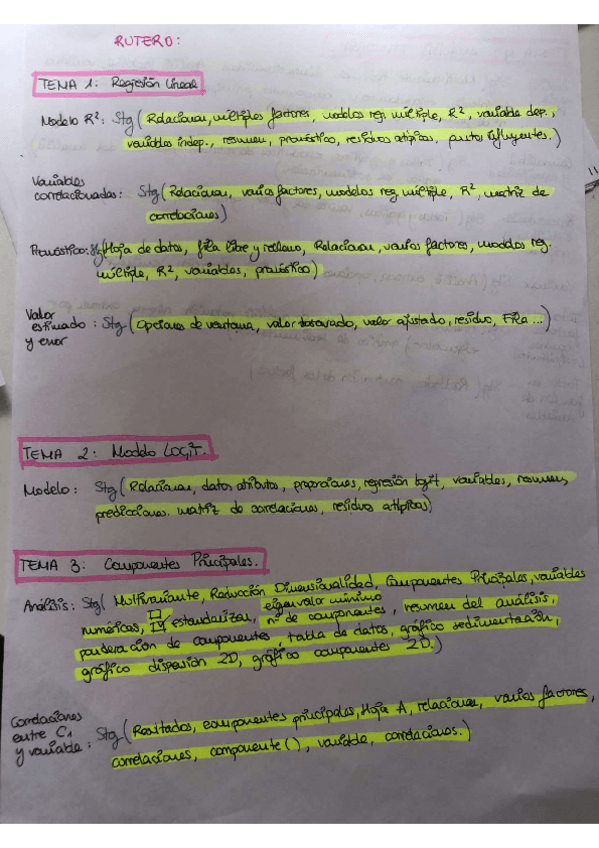 RUTERO:
TEMA 1: Regresión Lineal
Modelo R²: Stg (Relacionar, múltiples factores, modelos reg. múltiple, R², variable dep.,
variables indep., resumen, pronóstico, residuos atípicos, puntos influyentes.)
Variables
correlacionadas: Stg (Relacionar, varios factores, modelos reg múltiple, R², matriz de
correlaciones)
Pronóstico: Stg (Hoja de datos, fila libre y relleno, Relacionar, varios factores, modelos reg.
múltiple, R², variables, pronóstico)
Valor
estimado : Stg (Opciones de ventana, valor observado, valor ajustado, residuo, Fila ...)
y error
TEMA 2: Modelo LOGIT.
Modelo: Stg (Relacionar, datos atributos, proporciones, regresión logit, variables, resumen,
predicciones. matriz de correlaciones, residuos atípicos)
TEMA 3: Componentes Principales.
Análisis: Stg ( Multivariante, Reducción Dimensionalidad, Componentes Principales, variables
numéricas, estandarizar, eigenvalor mínimo
nº de componentes, resumen del análisis,
ponderación de componentes, tabla de datos, gráfico sedimentación,
gráfico dispersión 2D, gráfico componentes 2D.)
Correlaciones
entre C₁
y variable : Stg (Resultados, componentes principales, Hoja A, relacionar, varios factores,
correlaciones, componente (), variable, correlaciones.)